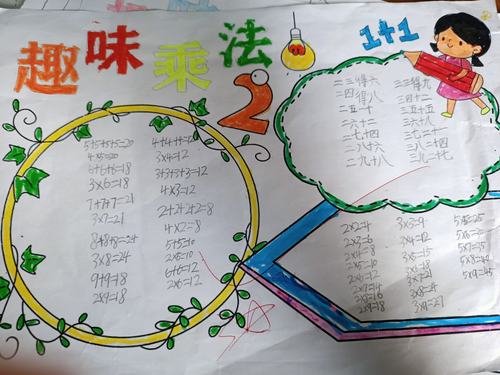 趣味乘法
2
1+1
5+5+5+5=20
4×5=20
6+6+6=18
3×6=18
7+7+7=21
3×7=21
8+8+8=24
3×8=24
9+9=18
2×9=18
4+4+4=12
3×4=12
3+3+3+3=12
4×3=12
2+2+2+2=8
4×2=8
5+5=10
2×5=10
6+6=12
2×6=12
二三得六
二四得八
二五一十
二六十二
二七十四
二八十六
二九十八
三三得九
三四十二
三五十五
三六十八
三七二十一
三八二十四
三九二十七
2×2=4
2×3=6
2×4=8
2×5=10
2×6=12
2×7=14
2×8=16
2×9=18
3×3=9
3×4=12
3×5=15
3×6=18
3×7=21
3×8=24
3×9=27
5×5=25
5×7=35
5×8=40